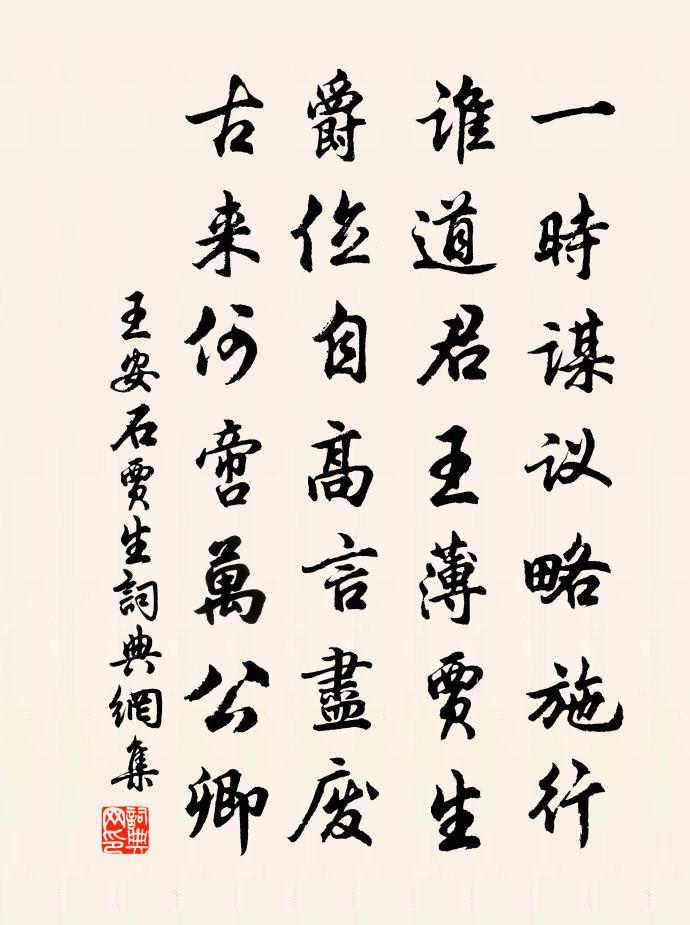 一時謀议略施行
誰道君王薄賈生
爵位自高言盡废
古来何啻萬公卿
王安石賈生詞典網集
詞典網印